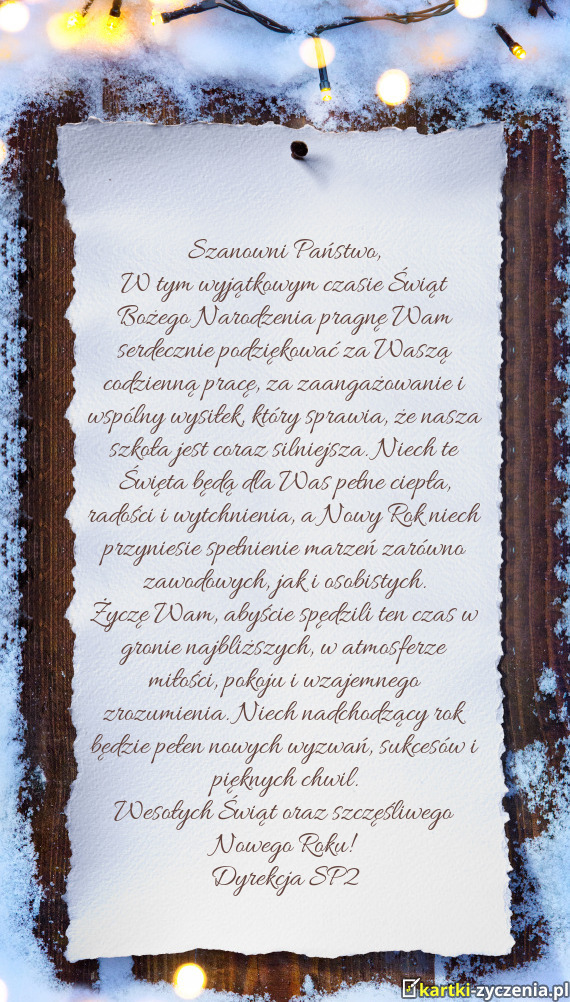 Szanowni Państwo,
W tym wyjątkowym czasie Świąt
Bożego Narodzenia pragnę Wam
serdecznie podziękować za Waszą
codzienną pracę, za zaangażowanie i
wspólny wysiłek, który sprawia, że nasza
szkoła jest coraz silniejsza. Niech te
Święta będą dla Was pełne ciepła,
radości i wytchnienia, a Nowy Rok niech
przyniesie spełnienie marzeń zarówno
zawodowych, jak i osobistych.
Życzę Wam, abyście spędzili ten czas w
gronie najbliższych, w atmosferze
miłości, pokoju i wzajemnego
zrozumienia. Niech nadchodzący rok
będzie pełen nowych wyzwań, sukcesów i
pięknych chwil.
Wesołych Świąt oraz szczęśliwego
Nowego Roku!
Dyrekcja SP2
kartki-zyczenia.pl